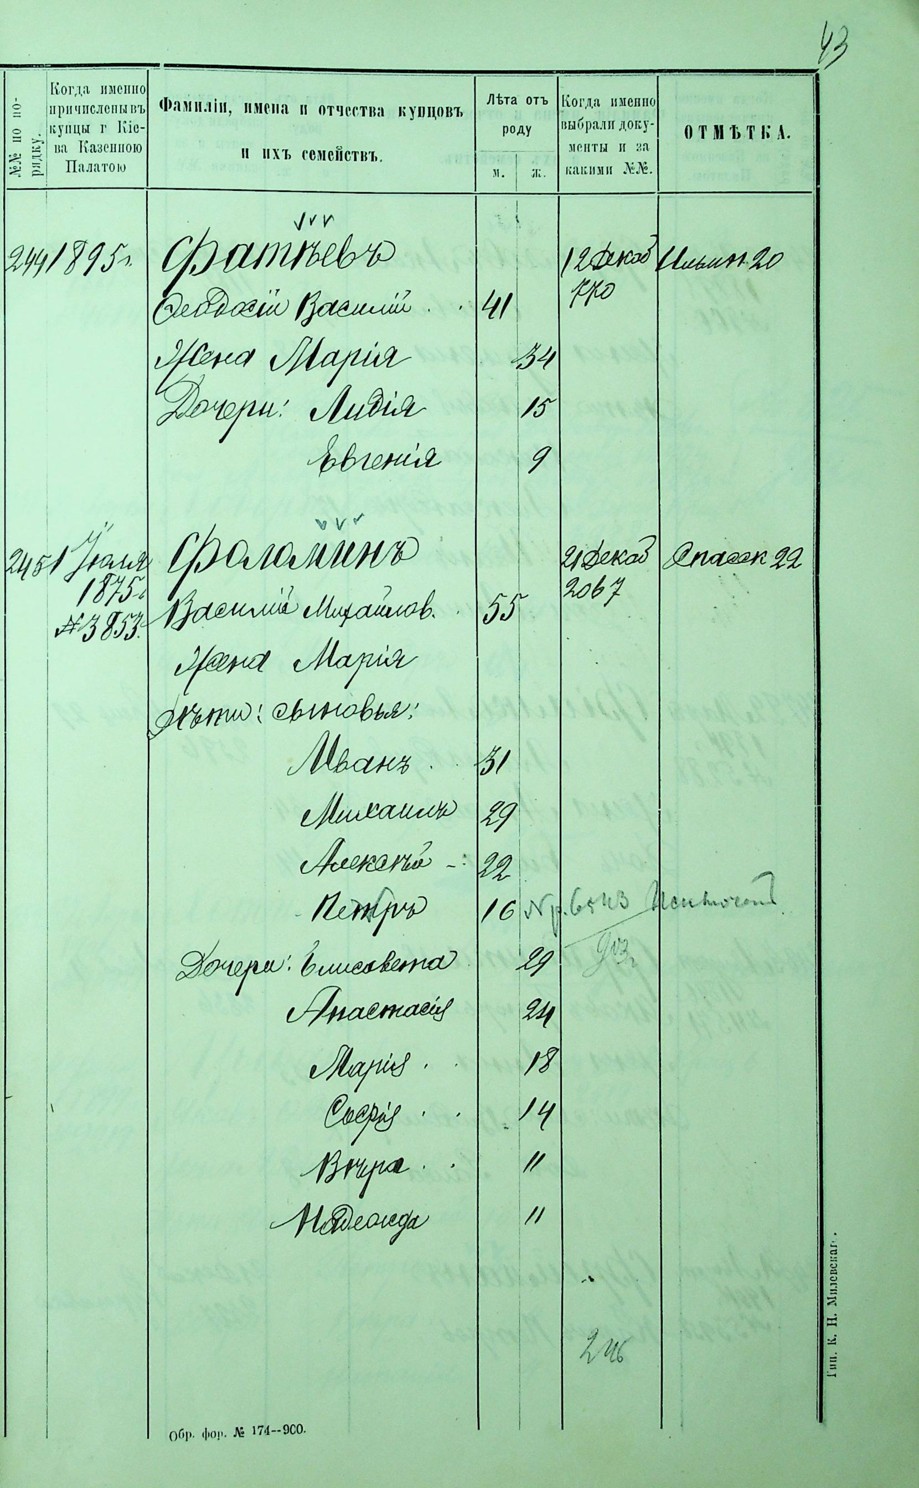 43
№№ по по-
рядку.
Когда именно
причислены въ
купцы г Кіе-
ва Казенною
Палатою
Фамиліи, имена и отчества купцовъ
и ихъ семействъ.
Лѣта отъ
роду
м. ж.
Когда именно
выбрали доку-
менты и за
какими №№.
ОТМѢТКА.
244 1895г. Фатѣевъ 12 Декаб Ильин 20
770
Феодосій Василій 41
Жена Марія 34
Дочери: Лидія 15
Евгенія 9
245 1 Іюля Фоломинъ 21 Декаб Спасск 22
1875г. 2067
№3853. Василій Михайлов. 55
Жена Марія
Дѣти: сыновья:
Иванъ 31
Михаилъ 29
Алексѣй 22
Петръ 16
Дочери: Елисавета 29
Анастасія 24
Марія 18
Софія 14
Вѣра "
Надежда "
246
Обр. фор. № 174--900.
Тип. К. Н. Милевскаг.